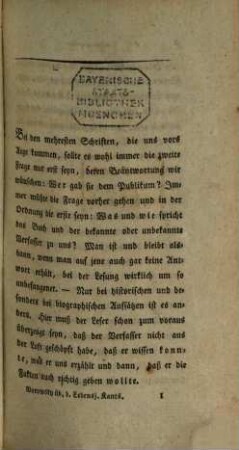 BAYERISCHE
STAATS-
BIBLIOTHEK
MUENCHEN
Bei den mehresten Schriften, die uns vors
Auge kommen, sollte es wohl immer die zweite
Frage nur erst seyn, deren Beantwortung wir
wünschen: Wer gab sie dem Publikum? Im-
mer müßte die Frage vorher gehen und in der
Ordnung die erste seyn: Was und wie spricht
das Buch und der bekannte oder unbekannte
Verfasser zu uns? Man ist und bleibt als-
dann, wenn man auf jene auch gar keine Ant-
wort erhält, bei der Lesung wirklich um so
unbefangener. — Nur bei historischen und be-
sonders bei biographischen Aufsätzen ist es an-
ders. Hier muß der Leser schon zum voraus
überzeugt seyn, daß der Verfasser nicht aus
der Luft geschöpft habe, daß er wissen konn-
te, was er uns erzählt und dann, daß er die
Fakten auch richtig geben wollte.
Borowsky üb. d. Lebensj. Kants. 1